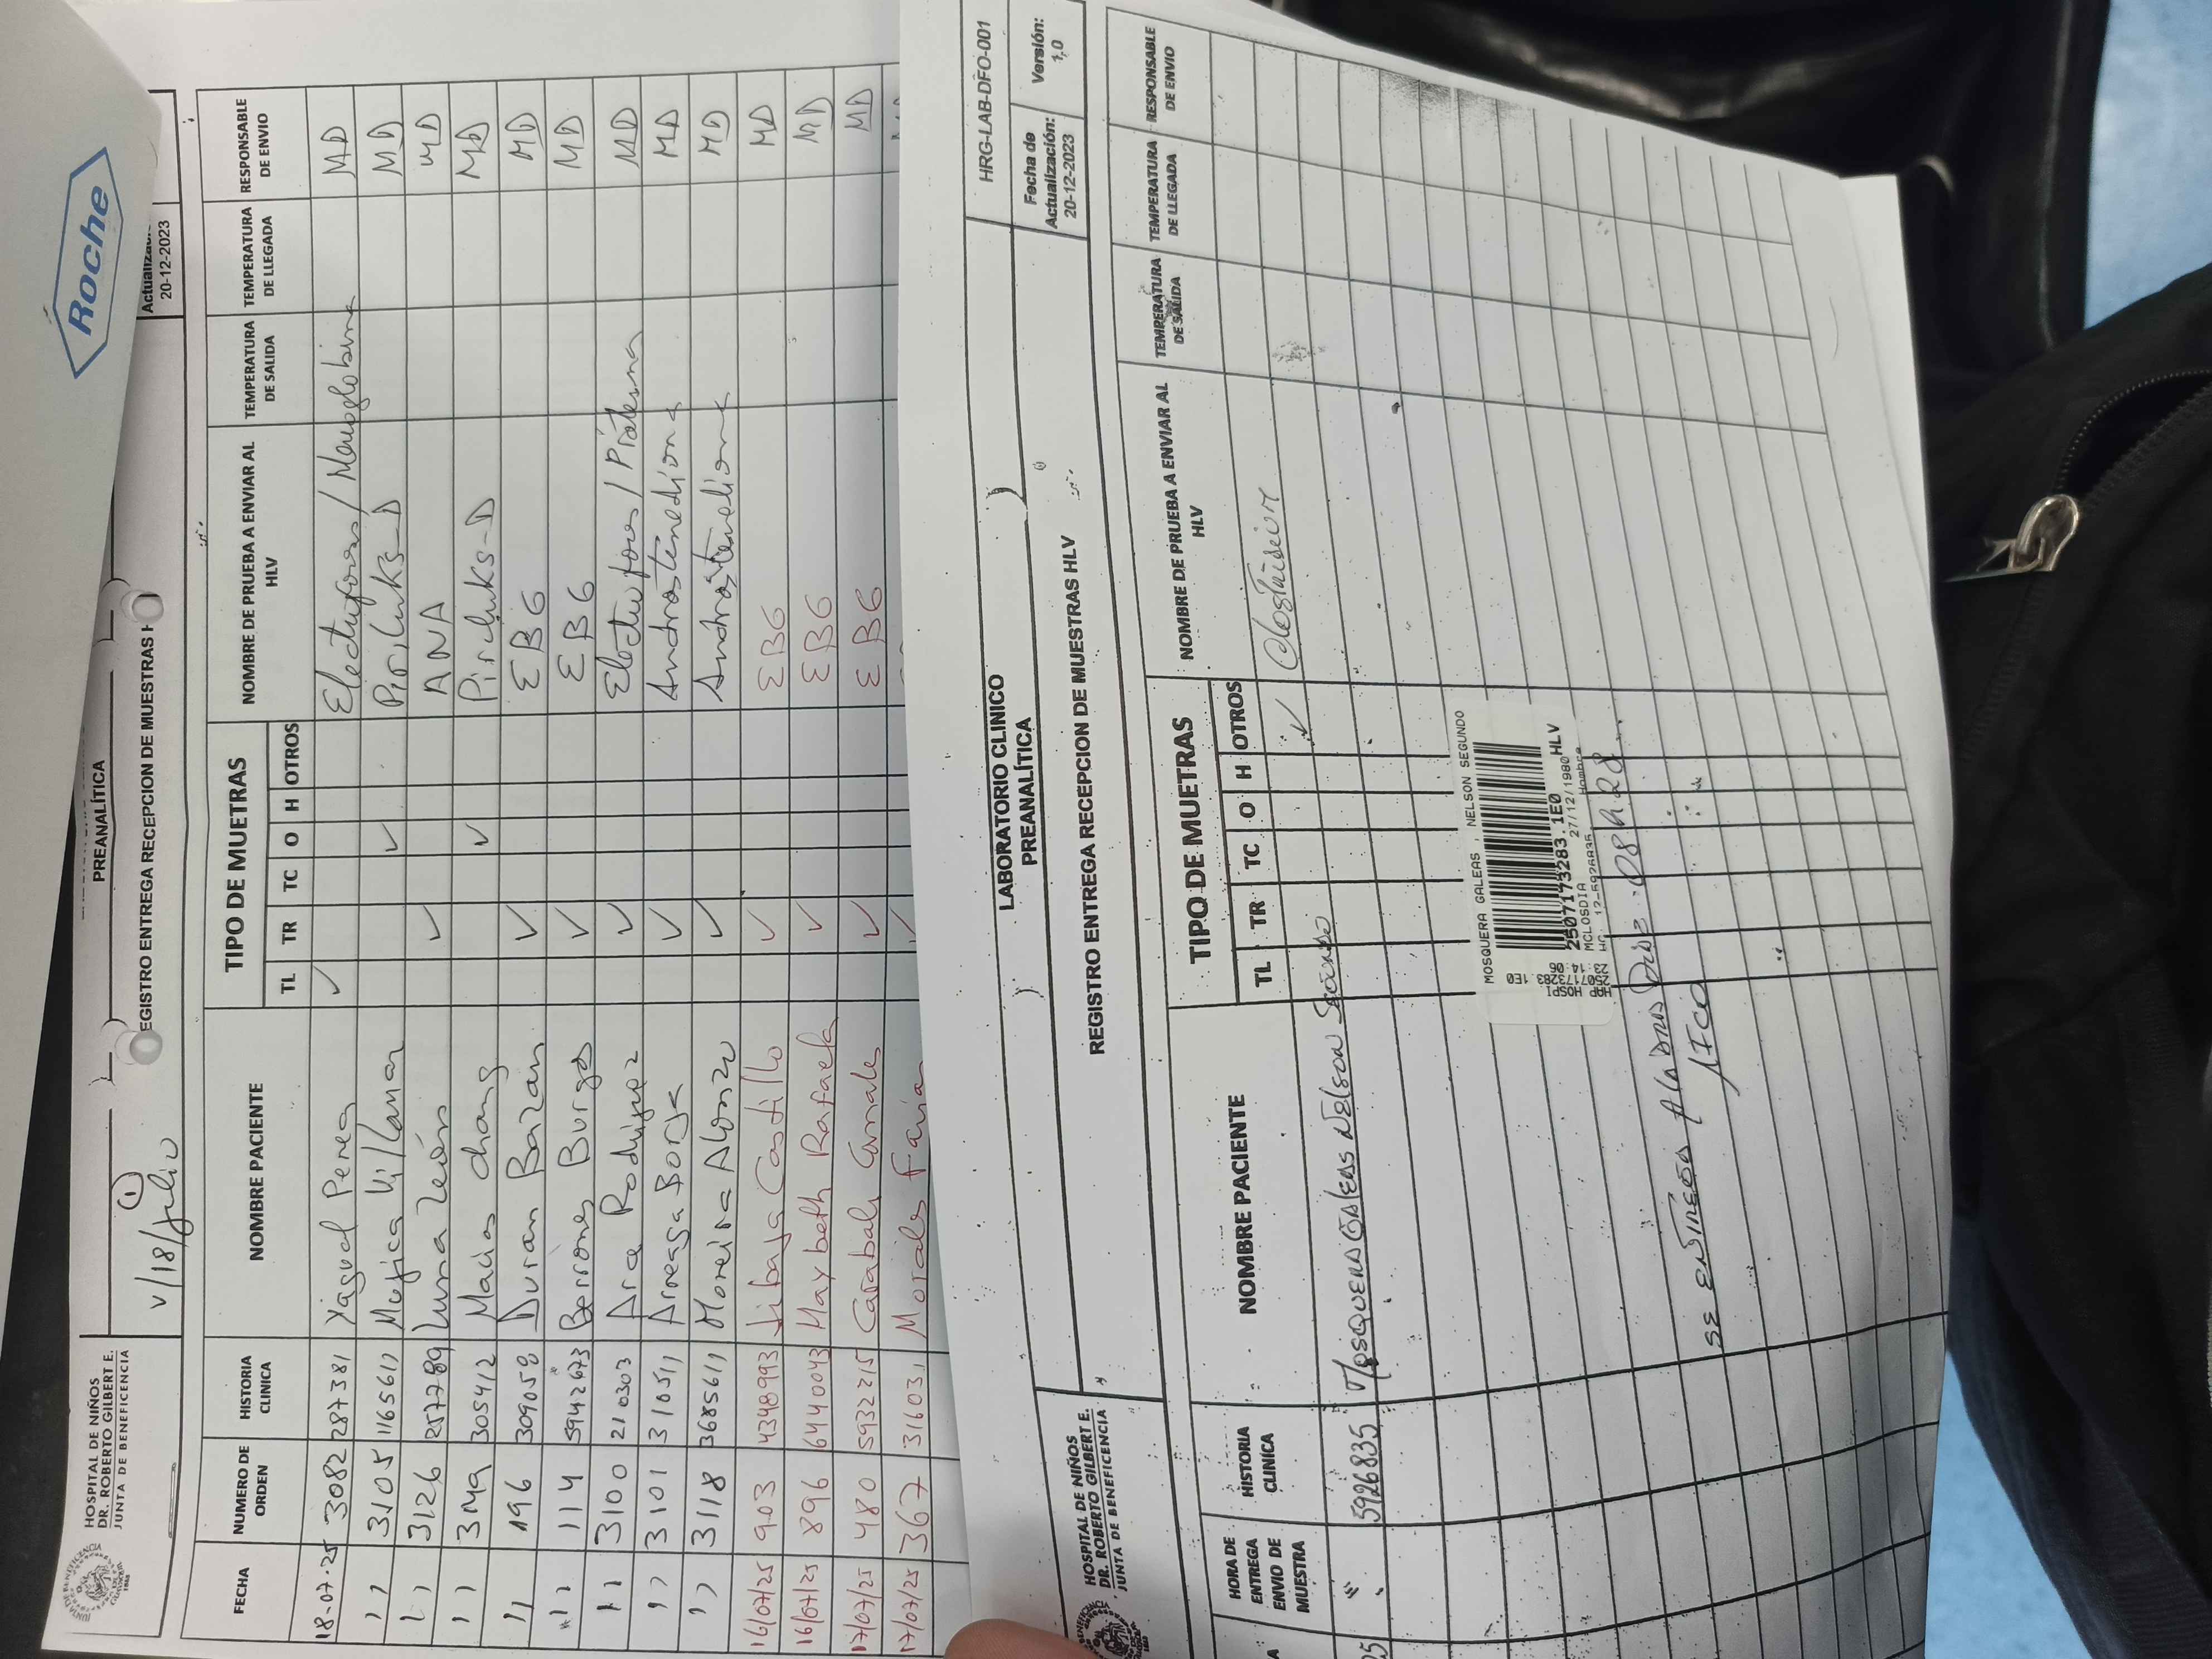 Roche
HOSPITAL DE NIÑOS
DR. ROBERTO GILBERT E.
JUNTA DE BENEFICENCIA
PREANALÍTICA
EGISTRO ENTREGA RECEPCION DE MUESTRAS H
Actualizac
20-12-2023
V/18/Julio
1
FECHA NUMERO DE ORDEN HISTORIA CLINICA NOMBRE PACIENTE TIPO DE MUETRAS NOMBRE DE PRUEBA A ENVIAR AL HLV TEMPERATURA DE SALIDA TEMPERATURA DE LLEGADA RESPONSABLE DE ENVIO
TL TR TC O H OTROS
18-07-25 3082 287381 Yagual Perea ✓ MD
11 3105 1165611 Mujica Villamar ✓ MD
11 3126 257789 Luna León ✓ ANA MD
11 305412 Macias Chang ✓ MD
11 196 309058 Duran Bazan ✓ EBG MD
11 114 5942673 Borriones Burgos ✓ EBG MD
11 3100 210303 Arce Rodriguez ✓ MD
11 3101 310511 Arreaga Borja ✓ Androstenediona MD
11 3118 3685611 Moreira Alonzo ✓ Androstenediona MD
16/07/25 903 4348993 Castillo ✓ EBG MD
16/07/25 896 6440043 Maybeth Rafaela ✓ EBG MD
17/07/25 480 5932215 Carabali ✓ EBG MD
17/07/25 367 316031 Morales ✓
HOSPITAL DE NIÑOS
DR. ROBERTO GILBERT E.
JUNTA DE BENEFICENCIA
LABORATORIO CLINICO
PREANALÍTICA
REGISTRO ENTREGA RECEPCION DE MUESTRAS HLV
HRG-LAB-DFO-001
Fecha de Actualización:
20-12-2023
Versión:
1,0
HORA DE ENTREGA ENVIO DE MUESTRA HISTORIA CLINICA NOMBRE PACIENTE TIPO DE MUETRAS NOMBRE DE PRUEBA A ENVIAR AL HLV TEMPERATURA DE SALIDA TEMPERATURA DE LLEGADA RESPONSABLE DE ENVIO
TL TR TC O H OTROS
25 5926835 Mosquera Galeas Nelson Segundo ✓
MOSQUERA GALEAS , NELSON SEGUNDO
2507173283.1E0
MCLOSDIA 27/12/1980 HLV
HC. 12-5926835 Hombre
HPP HOSPI
2507173283 1E0
SE ENTREGA A LA DRAS 08h20